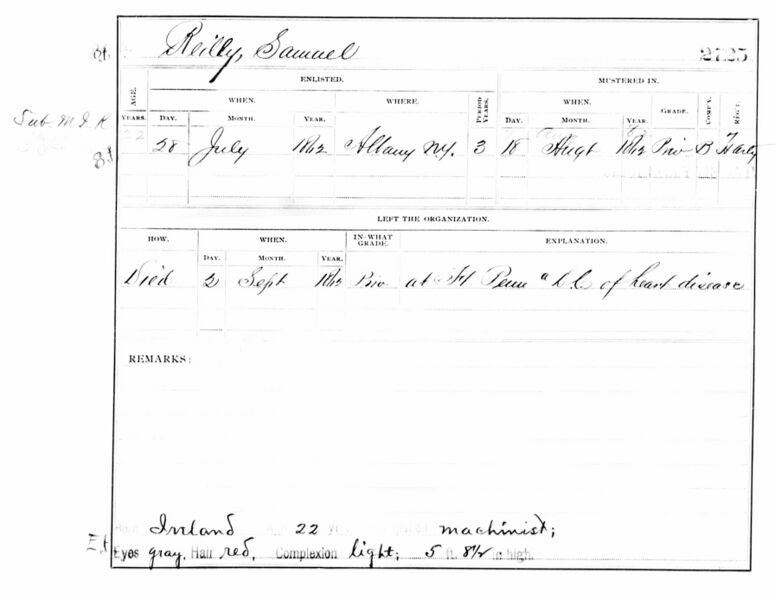 Reilly, Samuel 2725
ENLISTED. MUSTERED IN.
AGE. WHEN. WHERE. PERIOD YEARS. WHEN. GRADE. COMP'Y. REG'T.
YEARS. DAY. MONTH. YEAR. DAY. MONTH. YEAR.
22
28 July 1862 Albany N.Y. 3 18 Augt 1862 Priv B 7 Harty
LEFT THE ORGANIZATION.
HOW. WHEN. IN WHAT GRADE. EXPLANATION.
DAY. MONTH. YEAR.
Died 2 Sept 1862 Priv at Ft Penn a D.C. of heart disease
REMARKS:
Ireland 22 machinist;
Eyes gray, Hair red, Complexion light; 5 ft. 8½ in high.